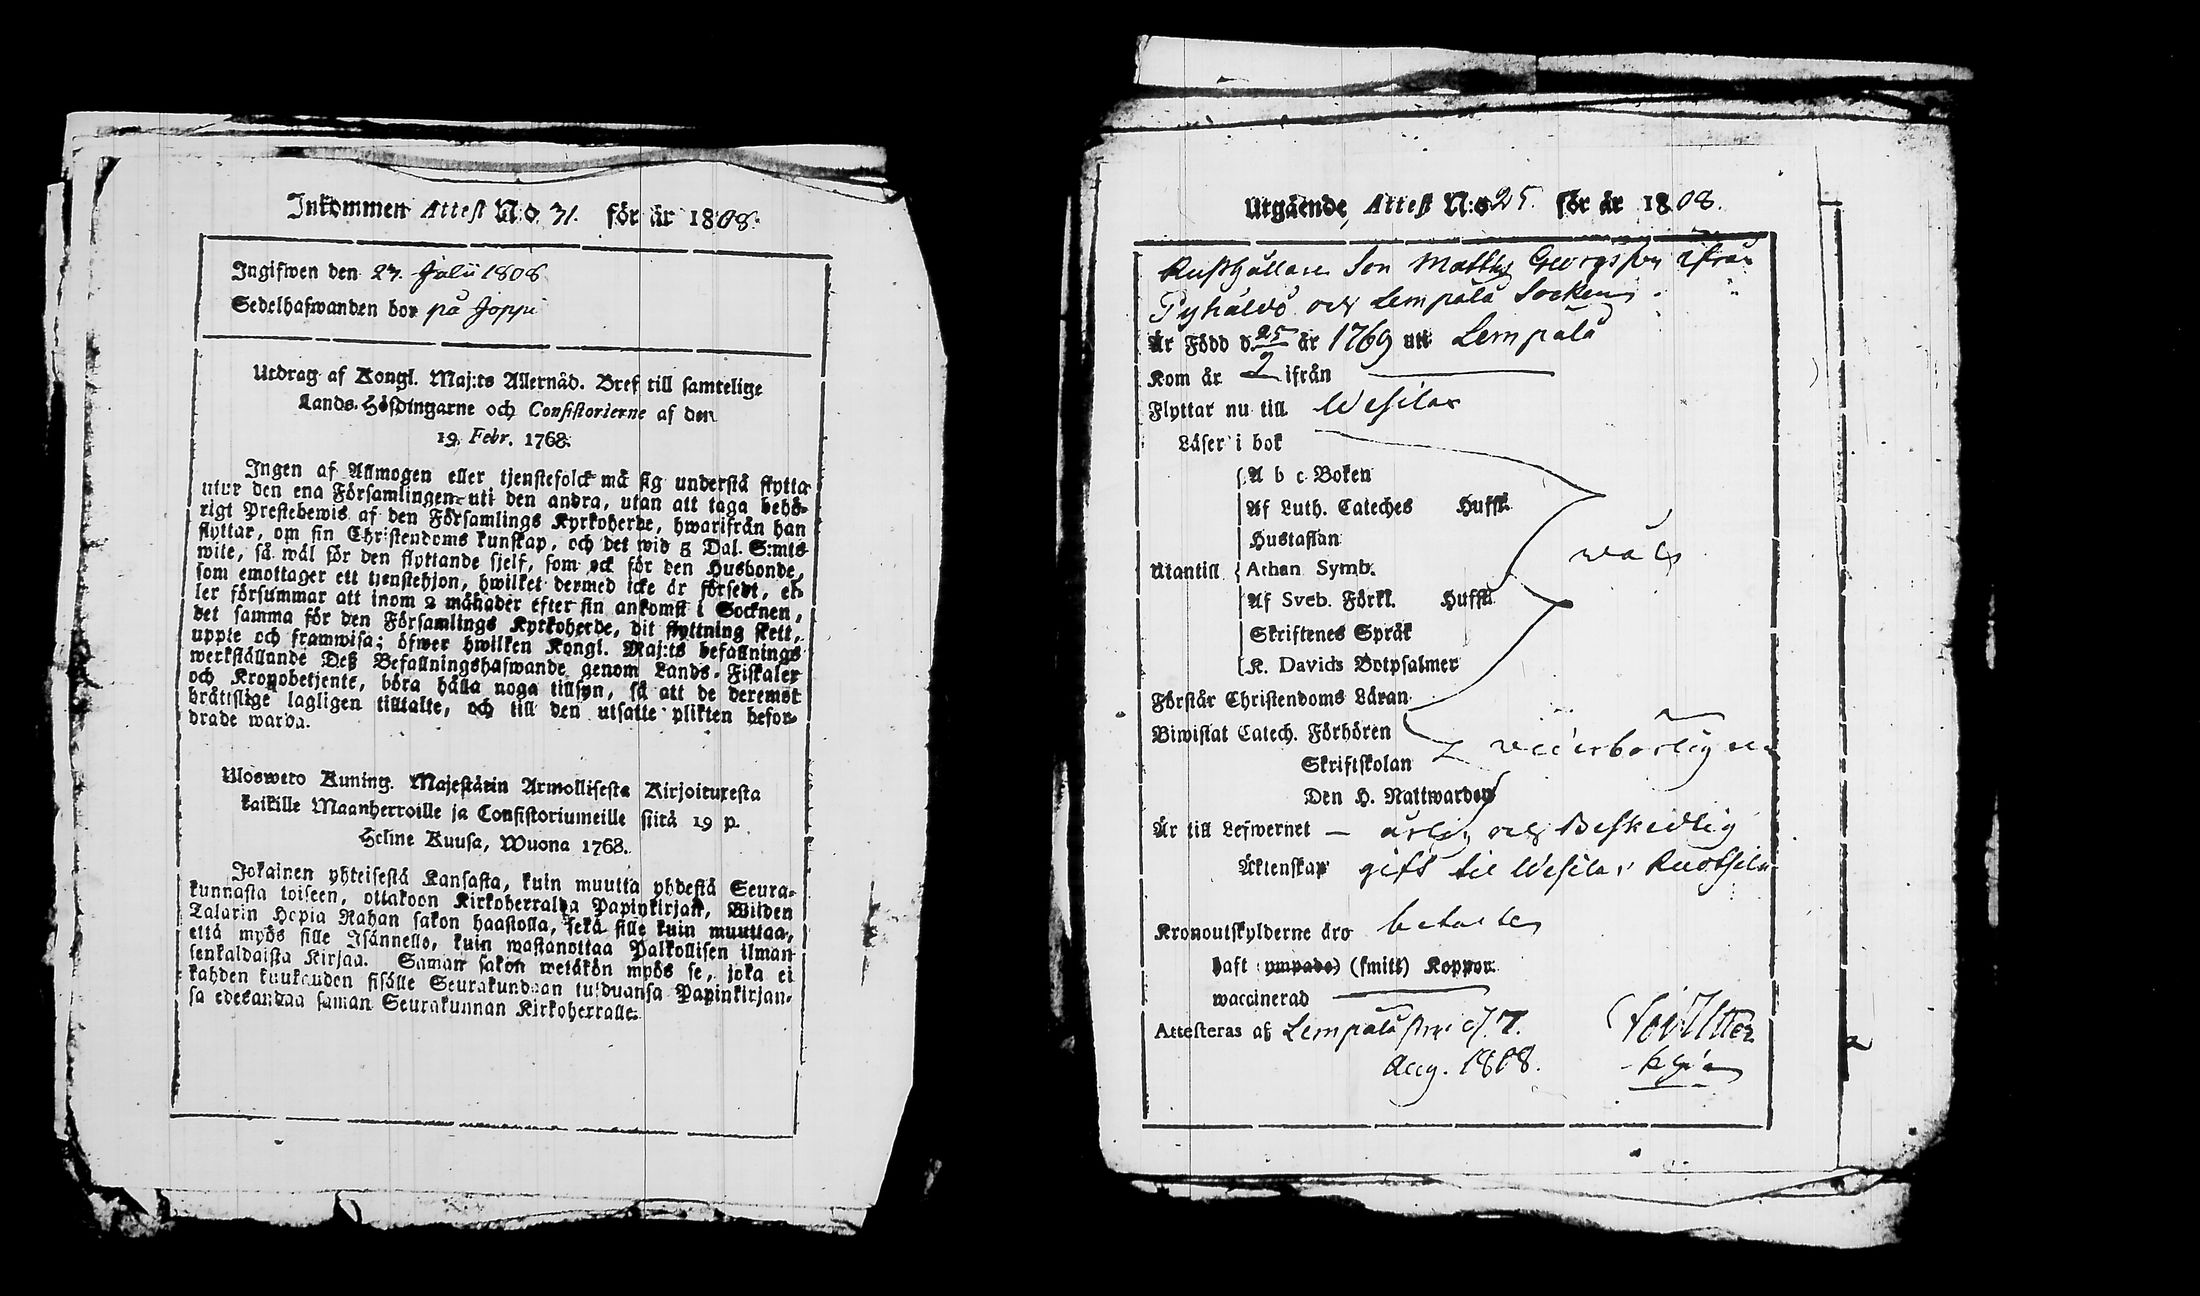 Inkommen Attest N:o 31. för år 1808.
Ingifwen den 27. Julii 1808
Sedelhafwanden bor på Joppi
Utdrag af Kongl. Maj:ts Allernåd. Bref till samtelige
Lands-Höfdingarne och Consistorierne af den
19. Febr. 1768.
Ingen af Allmogen eller tjenstefolck må sig understå flytta
utur den ena Församlingen uti den andra, utan att taga behö-
rigt Prestebewis af den Församlings Kyrkoherde, hwarifrån han
flyttar, om sin Christendoms kunskap, och det wid 5 Dal. S:mts
wite, så wäl för den flyttande sjelf, som ock för den Husbonde,
som emottager ett tjenstehjon, hwilket dermed icke är försedt, el-
ler försummar att inom 2 månader efter sin ankomst i Socknen,
det samma för den Församlings Kyrkoherde, dit flyttning skett,
uppte och framwisa; öfwer hwilken Kongl. Maj:ts befallnings
werkställande Deß Befallningshafwande genom Lands-Fiskaler
och Kronobetjente, böra hålla noga tillsyn, så att de deremot
bråttslige lagligen tilltalte, och till den utsatte plikten befor-
drade warda.
Ulosweto Kuning. Majestätin Armollisesta Kirjoituxesta
kaikille Maanherroille ja Consistoriumeille siitä 19 p.
Helme Kuusa, Wuona 1768.
Jokainen yhteisestä Kansasta, kuin muutta yhdestä Seura-
kunnasta toiseen, ottakoon Kirkoherralda Papinkirjan, Wiiden
Talarin Hopia Rahan sakon haastolla, sekä sille kuin muuttaa,
että myös sille Isännello, kuin wastanottaa Palkollisen ilman
senkaldaista Kirjaa. Saman sakon wetäkön myös se, joka ei
kahden kuukauden sisälle Seurakundaan tulduansa Papinkirjan-
sa edesandaa saman Seurakunnan Kirkoherralle.
Utgående Attest N:o 25. för år 1808.
Rusthållare Son Matths Georgsson ifrån
Pyhäldö och Lempälä Socken
Är Född d. 25/9 år 1769 uti Lempälä
Kom år ifrån
Flyttar nu till Wesilax
Läser i bok
A b c Boken
Af Luth. Cateches Hufst.
Hustaflan
Utantill Athan Symb.
Af Sveb. Förkl. Hufst.
Skriftenes Språk
K. Davids Botpsalmer
wäl
Förstår Christendoms Läran
Biwistat Catech. Förhören
Skriftskolan
Den H. Nattwarden
Är till Lefwernet — ärlig och Beskedlig
Äktenskap gift til Wesilax
Kronoutskylderne äro betalte
haft (ympade) (smitt) Koppor
waccinerad
Attesteras af Lempälä d. 7.
Aug. 1808.